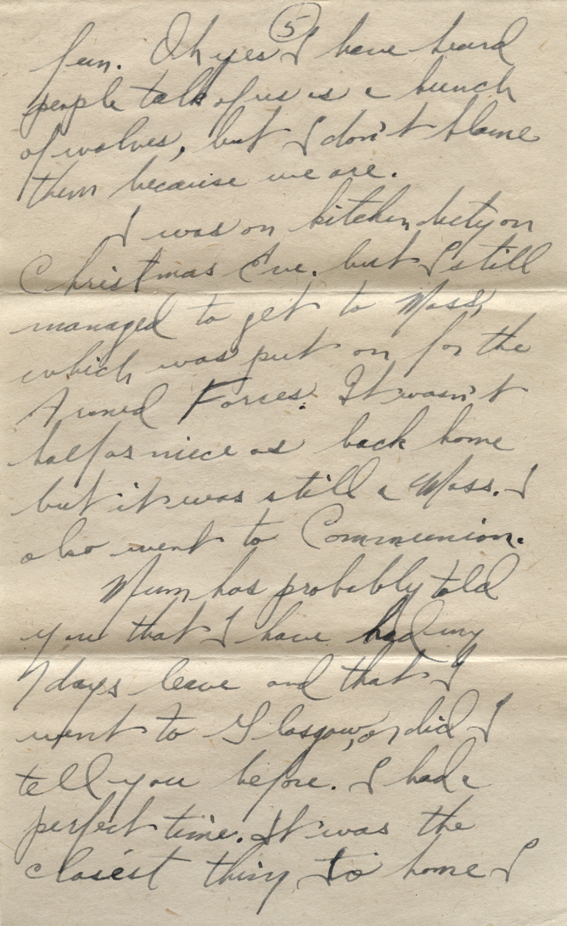 5
fun. Oh yes I have heard
people talk of us as a bunch
of wolves, but I don't blame
them because we are.
I was on kitchen duty on
Christmas Eve. but I still
managed to get to Mass,
which was put on for the
Armed Forces. It wasn't
half as niece as back home
but it was still a Mass. I
also went to Communion.
Mum has probably told
you that I have had my
7 days leave and that I
went to Glasgow, or did I
tell you before. I had a
perfect time. It was the
closest thing to home I